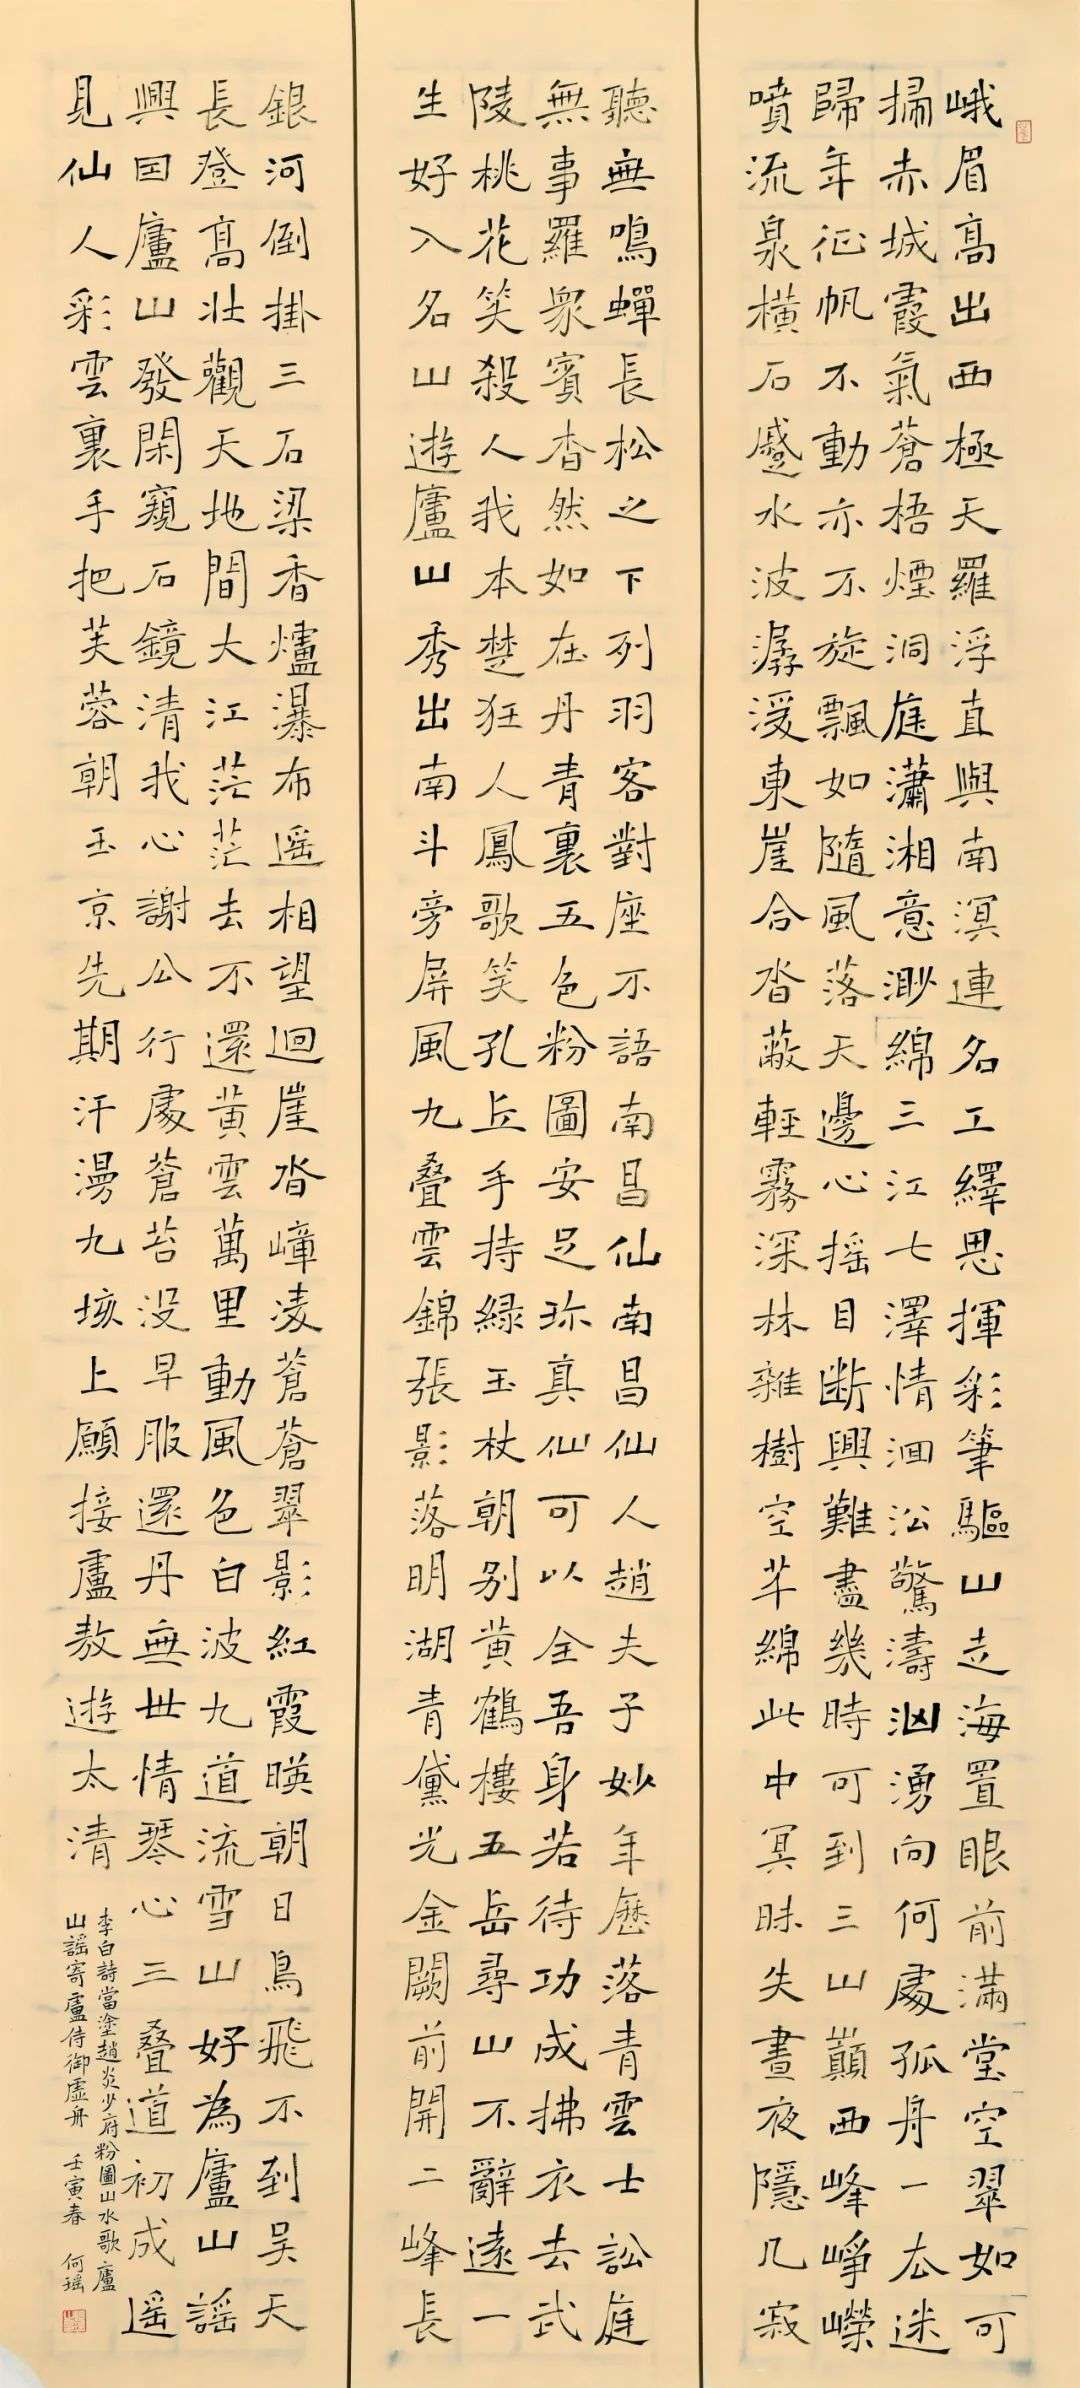 峨眉高出西極天羅浮直與南溟連名工繹思揮彩筆驅山走海置眼前滿堂空翠如可
掃赤城霞氣蒼梧煙洞庭瀟湘意渺綿三江七澤情洄沿驚濤洶湧向何處孤舟一去迷
歸年征帆不動亦不旋飄如隨風落天邊心摇目斷興難盡幾時可到三山巔西峰崢嶸
噴流泉橫石蹙水波潺湲東崖合沓蔽輕霧深林雜樹空芊綿此中冥昧失晝夜隱几寂
聽無鳴蟬長松之下列羽客對座不語南昌仙南昌仙人趙夫子妙年歷落青雲士訟庭
無事羅衆賓杳然如在丹青裏五色粉圖安足珍真仙可以全吾身若待功成拂衣去武
陵桃花笑殺人我本楚狂人鳳歌笑孔丘手持緑玉杖朝别黄鶴樓五岳尋山不辭遠一
生好入名山遊廬山秀出南斗旁屏風九叠雲錦張影落明湖青黛光金闕前開二峰長
銀河倒掛三石梁香爐瀑布遥相望迴崖沓嶂凌蒼蒼翠影紅霞暎朝日鳥飛不到吴天
長登高壯觀天地間大江茫茫去不還黄雲萬里動風色白波九道流雪山好為廬山謡
興因廬山發閑窺石鏡清我心謝公行處蒼苔没早服還丹無世情琴心三叠道初成遥
見仙人彩雲裏手把芙蓉朝玉京先期汗漫九垓上願接盧敖遊太清
李白詩當塗趙炎少府粉圖山水歌廬
山謡寄盧侍御虚舟 壬寅春 何瑶